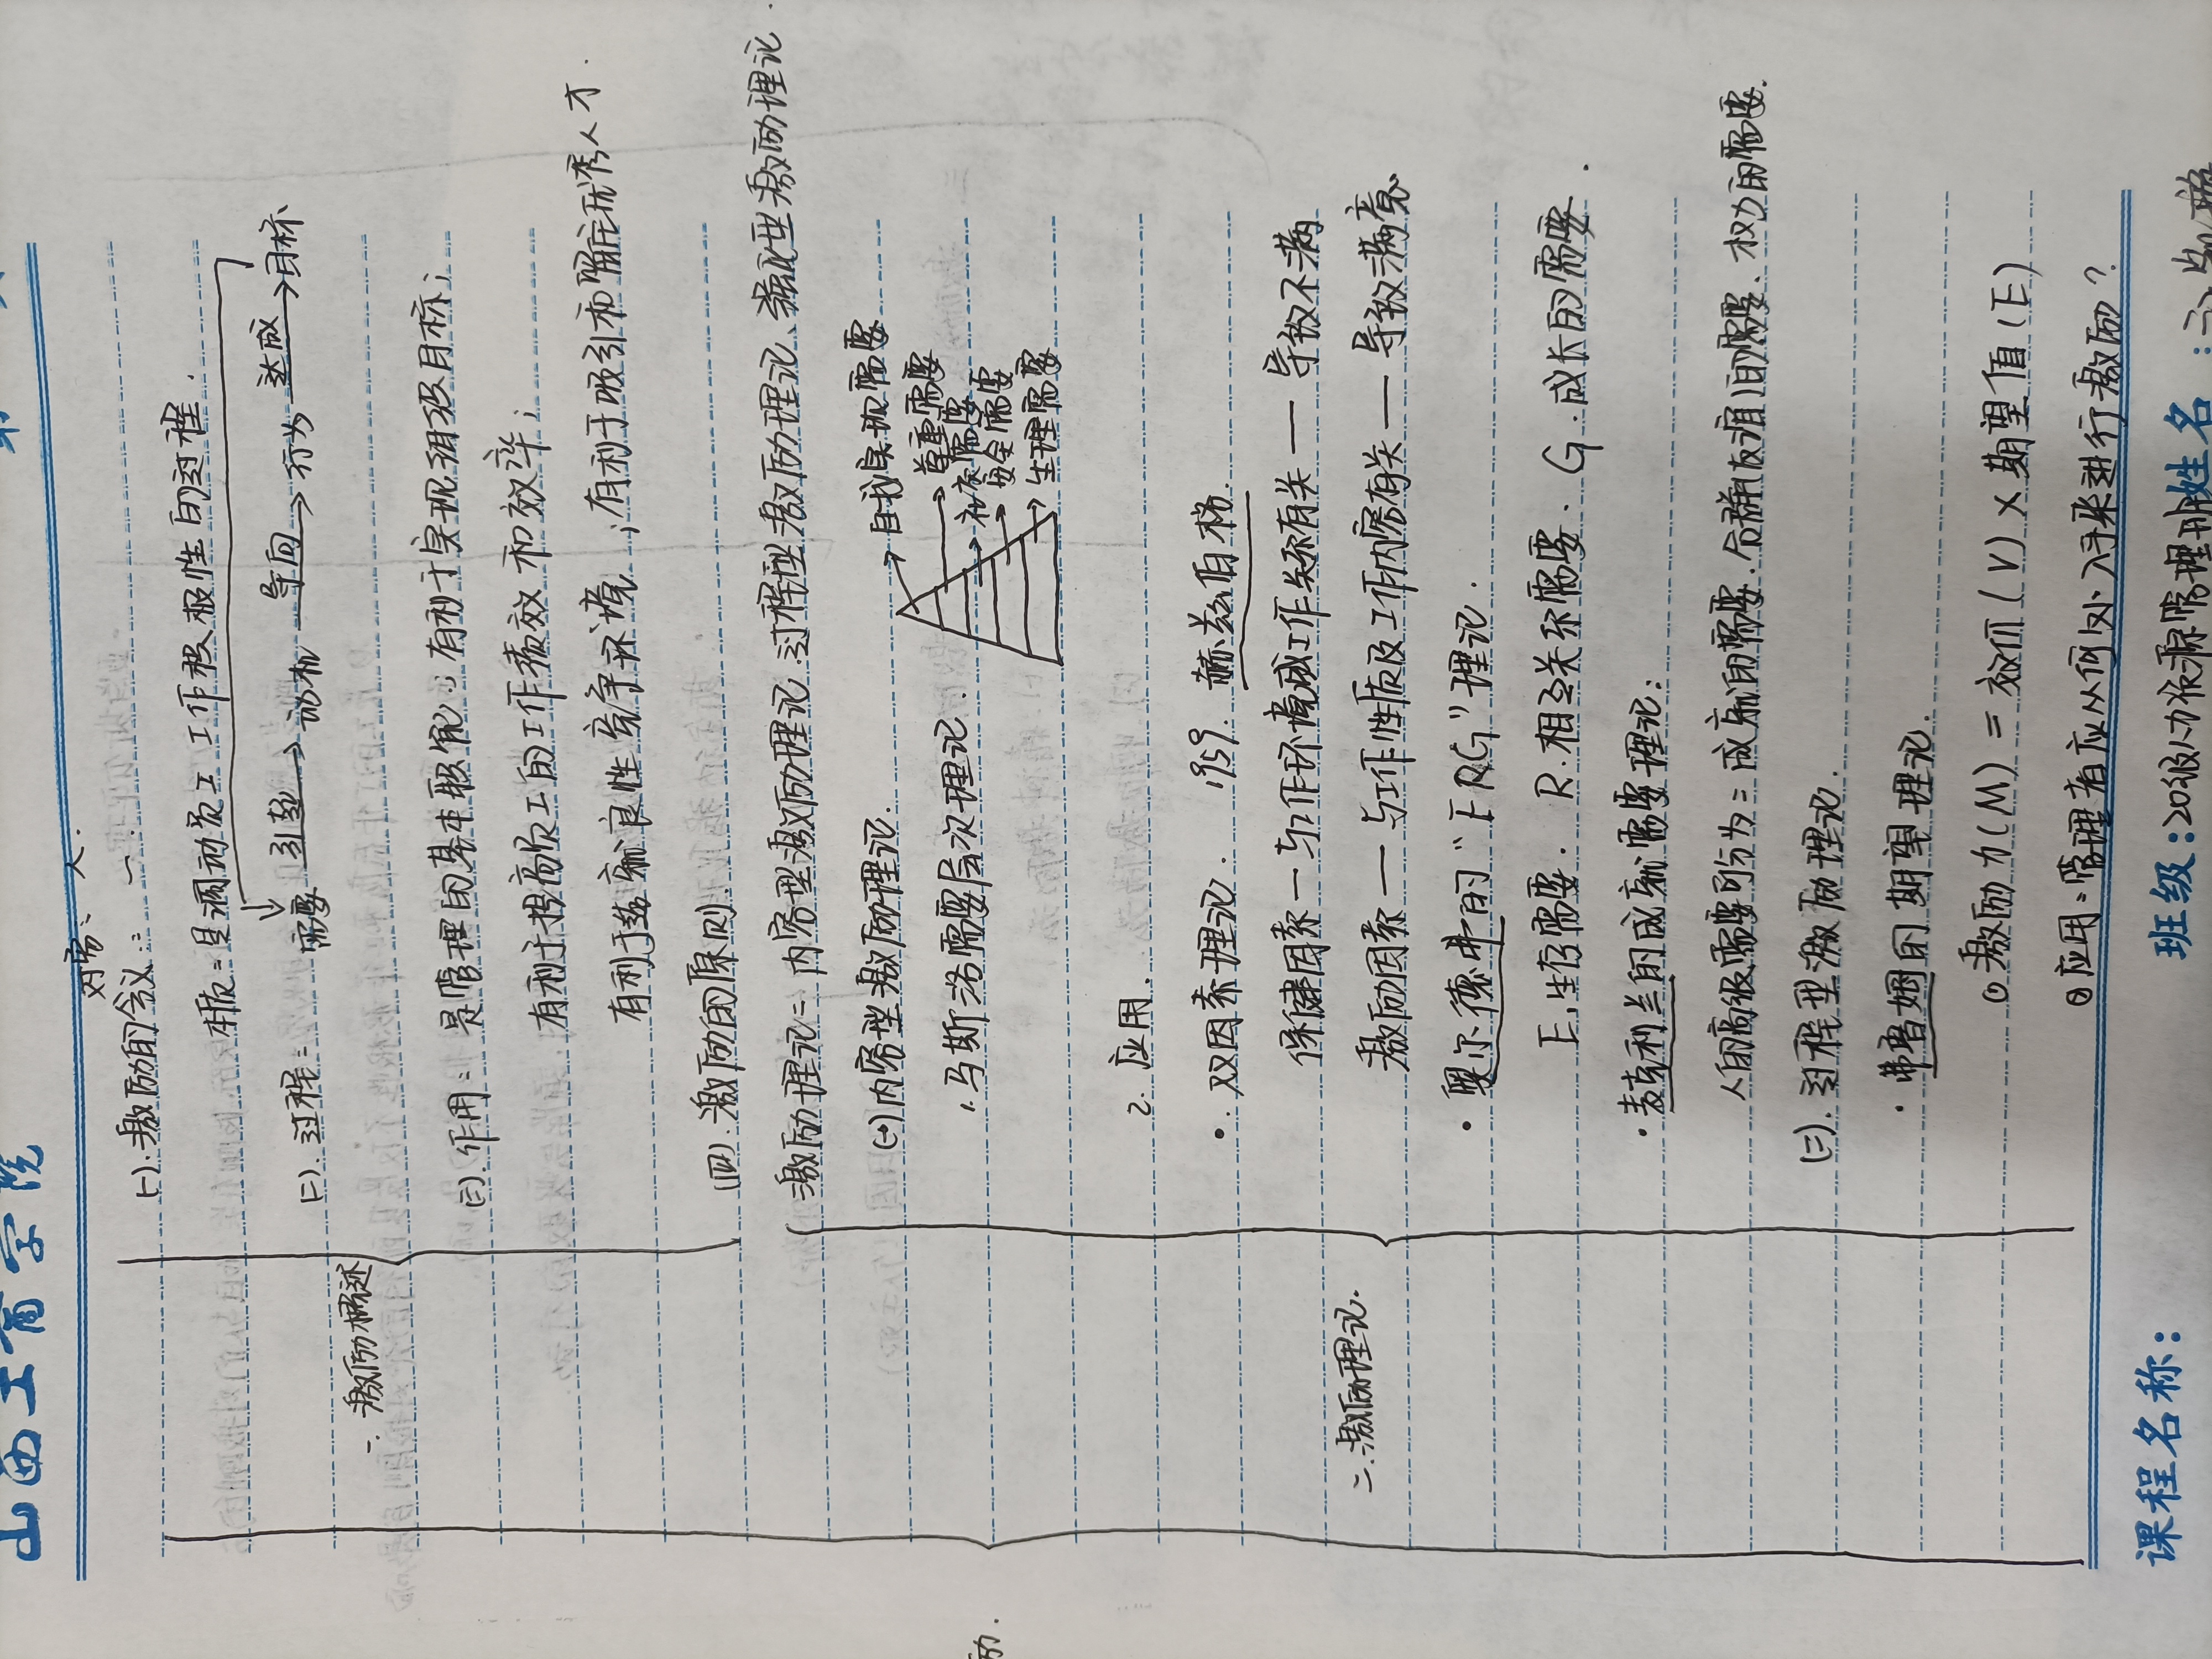 山西工商学院
对象：人.
(一).激励的含义：
本质：是调动员工工作积极性的过程.
(二).过程：需要 引起→动机 导向→行为 达成→目标
(三).作用：是管理的基本职能；有利于实现组织目标；
有利于提高员工的工作绩效和效率；
有利于造就良性竞争环境；有利于吸引和留住优秀人才.
(四).激励的原则.
一.激励概述
激励理论：内容型激励理论.过程型激励理论、强化型激励理论.
(一)内容型激励理论.
·马斯洛需要层次理论.
→自我实现需要
→尊重需要
→社交需要
→安全需要
→生理需要
2.应用.
·双因素理论. 1959. 赫兹伯格.
保健因素—与工作环境或工作关系有关—导致不满
激励因素—与工作性质及工作内容有关—导致满意
二.激励理论.
·奥尔德弗的“ERG”理论.
E.生存需要. R.相互关系需要. G.成长的需要.
·麦克利兰的成就需要理论：
人的高级需要分为：成就的需要.合群(友谊)的需要、权力的需要.
(二).过程型激励理论.
·弗鲁姆的期望理论.
①激励力(M)=效价(V)×期望值(E)
②应用：管理者应从何处入手来进行激励？
励.
课程名称：
班级：20级人力资源管理
姓名：